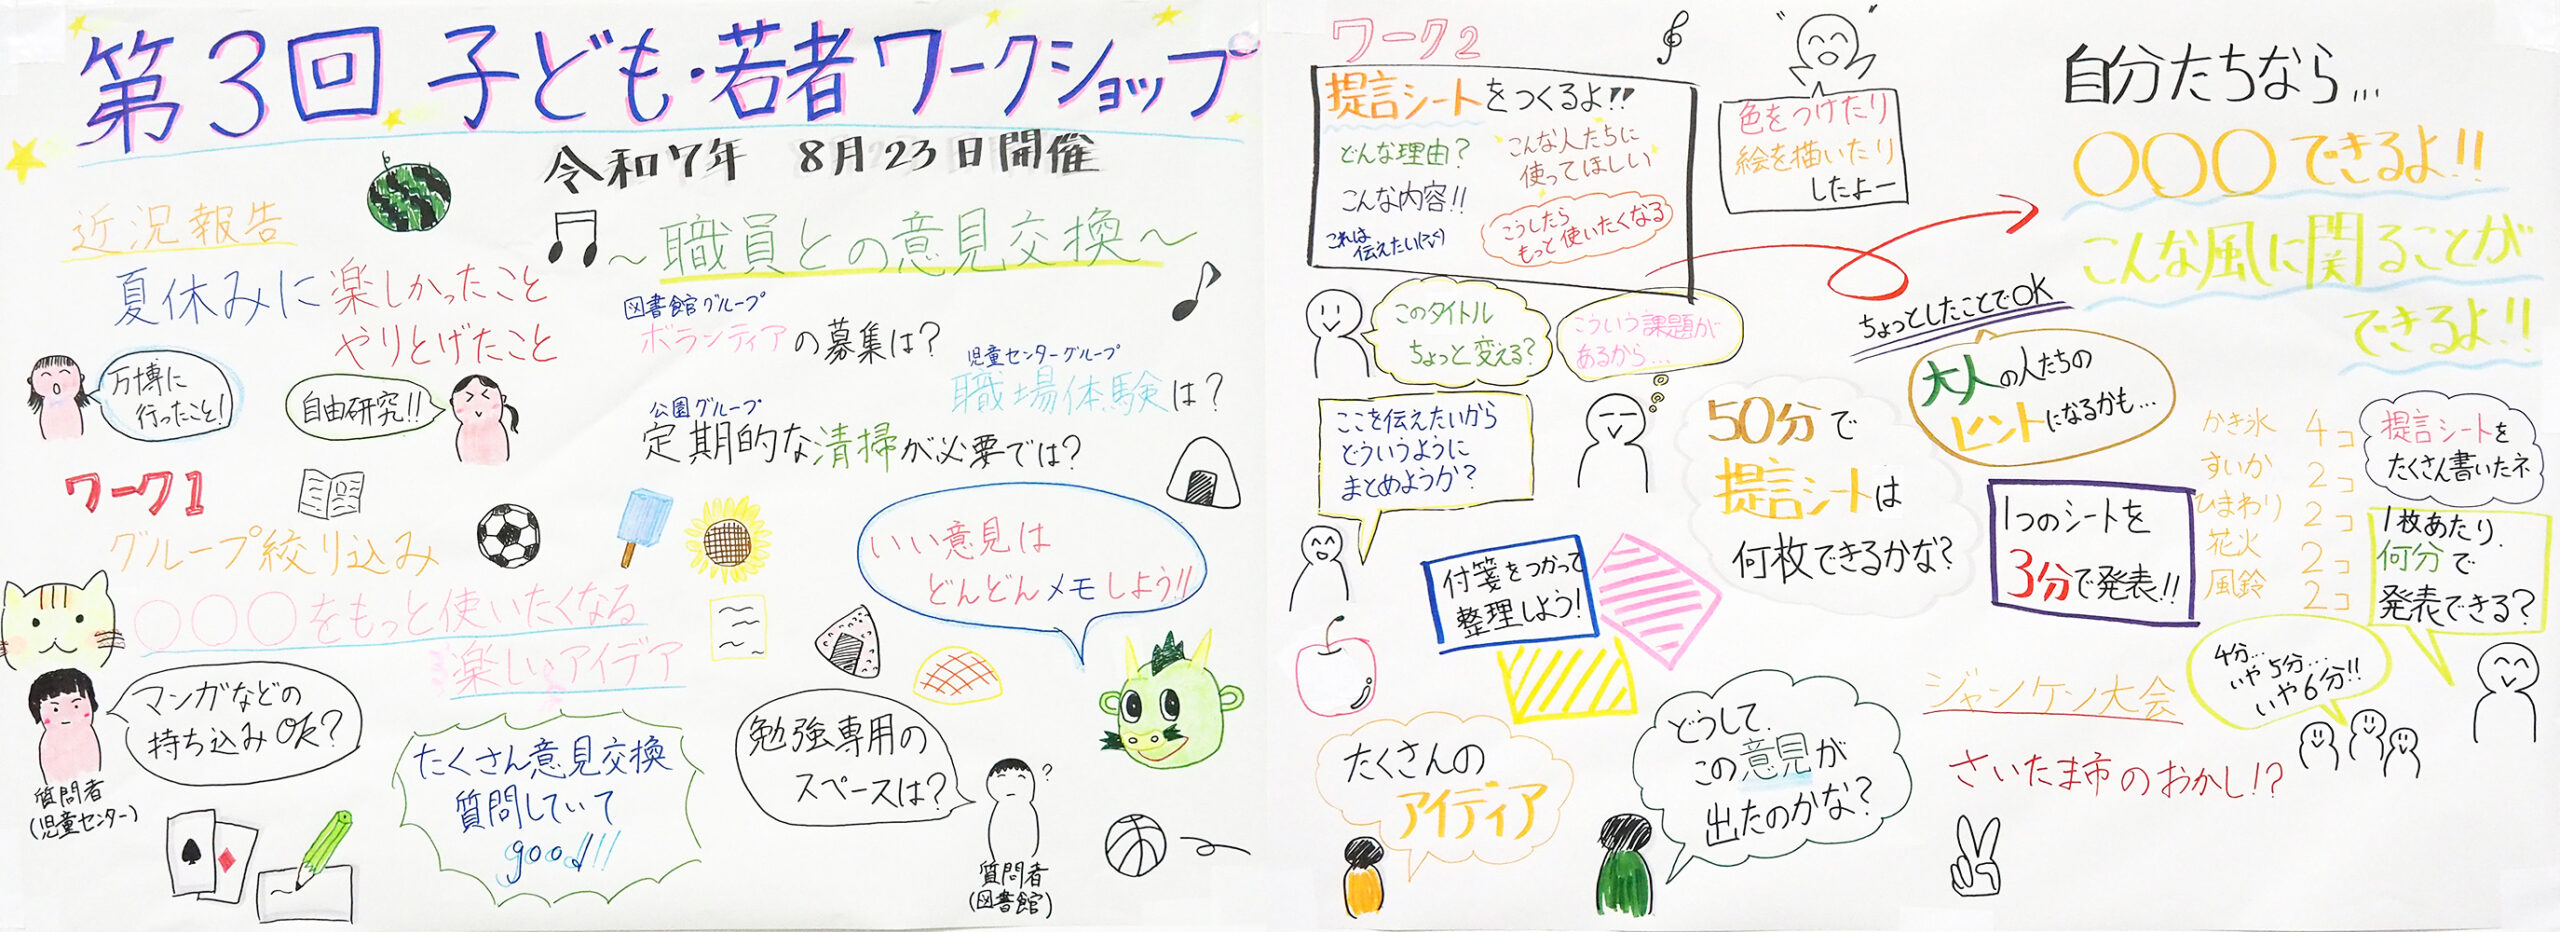 第3回 子ども・若者ワークショップ
令和7年 8月23日開催
近況報告
夏休みに楽しかったこと
やりとげたこと
万博に
行ったこと!
自由研究!!
～職員との意見交換～
図書館グループ
ボランティアの募集は?
児童センターグループ
職場体験は?
公園グループ
定期的な清掃が必要では?
ワーク1
グループ絞り込み
○○○をもっと使いたくなる
楽しいアイデア
いい意見は
どんどんメモしよう!!
マンガなどの
持ち込みOK?
質問者
(児童センター)
たくさん意見交換
質問していて
good!!
勉強専用の
スペースは?
?
質問者
(図書館)
ワーク2
提言シートをつくるよ!!
どんな理由?
こんな人たちに
使ってほしい
こんな内容!!
こうしたら
もっと使いたくなる
これは
伝えたい
色をつけたり
絵を描いたり
したよー
自分たちなら...
○○○できるよ!!
こんな風に関ることが
できるよ!!
このタイトル
ちょっと変える?
こういう課題が
あるから...
ここを伝えたいから
どういうように
まとめようか?
付箋をつかって
整理しよう!
50分で
提言シートは
何枚できるかな?
ちょっとしたことでOK
大人の人たちの
ヒントになるかも...
1つのシートを
3分で発表!!
かき氷 4コ
すいか 2コ
ひまわり 2コ
花火 2コ
風鈴 2コ
提言シートを
たくさん書いたネ
1枚あたり
何分で
発表できる?
4分...
いや5分...
いや6分!!
たくさんの
アイディア
どうして
この意見が
出たのかな?
ジャンケン大会
さいたま市のおかし!?